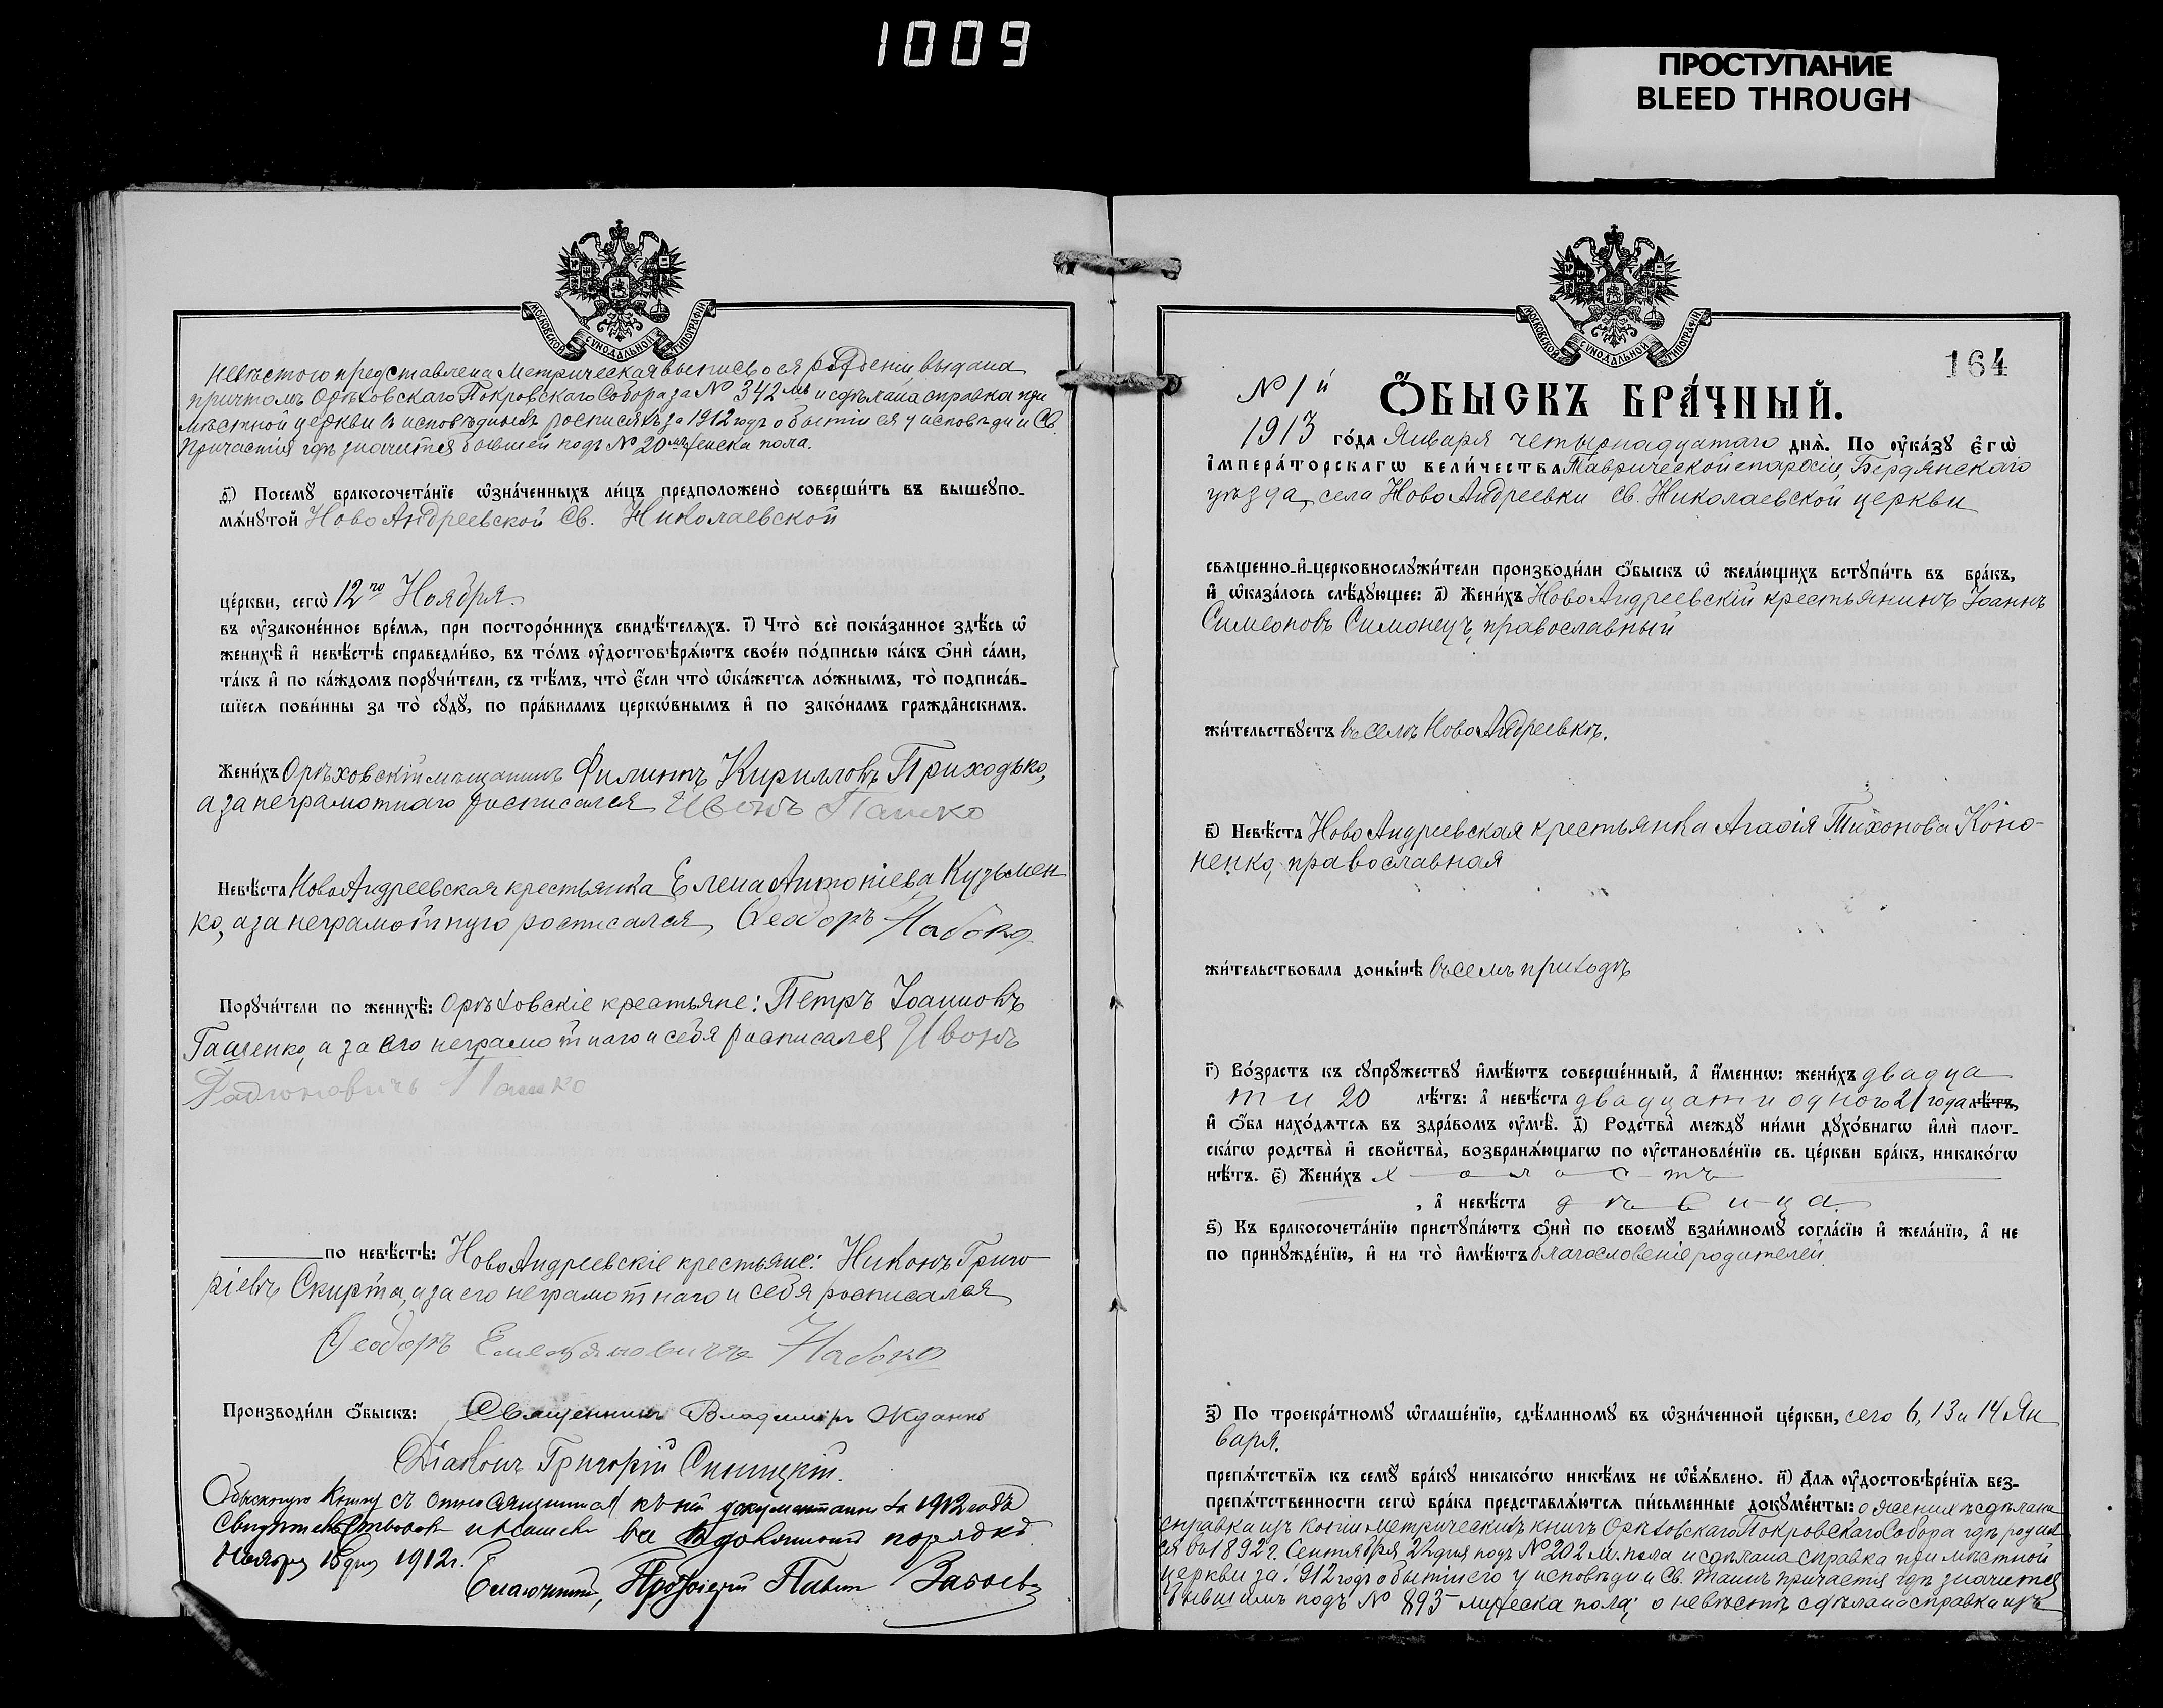 1009
ПРОСТУПАНИЕ
BLEED THROUGH
МОСКОВСКОЙ СѴНОДАЛЬНОЙ ТИПОГРАФІИ
невѣстою представлена Метрическая выпись о ея рожденіи, выдана
причтомъ Орѣховскаго Покровскаго Собора за № 342мъ и сдѣлана справка при
мѣстной церкви въ исповѣдныхъ росписяхъ за 1912 годъ о бытіи ея у исповѣди и Св.
Причастія гдѣ значится бывшей подъ № 20мъ женска пола.
Посемꙋ бракосочета́нїе ѡ҆зна́ченныхъ ли́цъ предположено̀ соверши́ть въ вышеꙋпо-
мѧ́нꙋтой Ново Андреевской Св. Николаевской
це́ркви, сегѡ̀ 12го Ноября.
въ ᲂу҆законе́нное вре́мѧ, при посторо́ннихъ свидѣ́телѧхъ. і҃) Что̀ всѐ пока́занное здѣ́сь ѡ҆
женихѣ̀ и҆ невѣ́стѣ справедли́во, въ то́мъ ᲂу҆достовѣрѧ́ютъ свое́ю по́дписью ка́къ ѻ҆нѝ са́ми,
та́къ и҆ по ка́ждомъ порꙋчи́тели, съ тѣ́мъ, что̀ є҆́сли что̀ ѡ҆ка́жетсѧ ло́жнымъ, то̀ подписа́в-
шїесѧ пови́нны за то̀ сꙋдꙋ̀, по пра́виламъ церкѡ́внымъ и҆ по зако́намъ гражда̂нскимъ.
Жени́хъ Орѣховскій мѣщанинъ Филиппъ Кирилловъ Приходько,
а за неграмотнаго росписался Ивонъ Пашко
Невѣ́ста Ново Андреевская крестьянка Елена Антоніева Кузьмен
ко, а за неграмотную росписался Ѳеодоръ Набока
Порꙋчи́тели по женихѣ̀: Орѣховскіе крестьяне: Петръ Іоанновъ
Гашенко, а за его неграмотнаго и себя росписался Ивонъ
Радионовичъ Пашко
по невѣ́стѣ: Ново Андреевскіе крестьяне: Никонъ Григо
ріевъ Скирта, а за его неграмотнаго и себя росписался
Ѳеодоръ Емельяновичъ Набока
Производи́ли ѻ҆́быскъ: Священникъ Владиміръ Жданко
Діаконъ Григорій Синицкій.
Обыскную книгу съ относящимися къ ней документами за 1912 годъ
свидѣтельствовалъ и нашелъ въ надлежащемъ порядкѣ
Ноября 15 дня 1912 г.
Благочинный, Протоіерей Павелъ
МОСКОВСКОЙ СѴНОДАЛЬНОЙ ТИПОГРАФІИ
164
№ 1й
Ѻ҆́БЫСКЪ БРА́ЧНЫЙ.
1913 го́да Января четырнадцатаго днѧ̀. По ᲂу҆ка́зꙋ є҆гѡ̀
і҆мпера́торскагѡ вели́чества Таврической епархіи, Бердянскаго
уѣзда, села Ново Андреевки Св. Николаевской церкви
свѧщенно-и҆-церковнослꙋжи́тели производи́ли ѻ҆́быскъ ѡ҆ жела́ющихъ встꙋпи́ть въ бра́къ,
и҆ ѡ҆каза́лось слѣ́дꙋющее: а҃) Жени́хъ Ново Андреевскій крестьянинъ Іоаннъ
Симеоновъ Симонецъ, православный
жи́тельствꙋетъ въ селѣ Ново Андреевкѣ.
в҃) Невѣ́ста Ново Андреевская крестьянка Агаѳія Тихонова Коно-
ненко, православная
жи́тельствовала доны́нѣ въ семъ приходѣ
г҃) Во́зрастъ къ сꙋпрꙋ́жествꙋ и҆мѣ́ютъ соверше́нный, а҆ и҆́меннѡ: жени́хъ двадца
ти 20 лѣ́тъ: а҆ невѣ́ста двадцати одного 21 года лѣ́тъ,
и҆ ѻ҆́ба нахо́дѧтсѧ въ здра́вомъ ᲂу҆мѣ̀. д҃) Родства̀ междꙋ ни́ми дꙋхо́внагѡ и҆лѝ плот-
ска́гѡ родства̀ и҆ свойства̀, возбранѧ́ющагѡ по ᲂу҆становле́нїю св. це́ркви бра́къ, никако́гѡ
нѣ́тъ. є҃) Жени́хъ холостъ
, а҆ невѣ́ста дѣвица
ѕ҃) Къ бракосочета́нїю пристꙋпа́ютъ ѻ҆нѝ по своемꙋ̀ взаи́мномꙋ согла́сїю и҆ жела́нїю, а҆ не
по принꙋжде́нїю, и҆ на то̀ и҆мѣ́ютъ благословеніе родителей.
з҃) По троекра́тномꙋ ѡ҆глаше́нїю, сдѣ́ланномꙋ въ ѡ҆зна́ченной це́ркви, сего 6, 13 и 14 Ян
варя.
препѧ́тствїѧ къ семꙋ̀ бра́кꙋ никако́гѡ никѣ́мъ не ѡ҆б̾ѧ́влено. и҃) Длѧ ᲂу҆достовѣре́нїѧ без-
препѧ́тственности сегѡ̀ бра́ка представлѧ́ютсѧ пи́сьменные докꙋме́нты: о женихѣ сдѣлана
справка изъ копіи метрическихъ книгъ Орѣховскаго Покровскаго Собора гдѣ родил
ся въ 1892 г. Сентября 22 дня подъ № 202 м. пола и сдѣлана справка при мѣстной
церкви за 1912 годъ о бытіи его у исповѣди и Св. Таинъ причастія гдѣ значится
бывшимъ подъ № 893 мужеска пола; о невѣстѣ сдѣлана справка изъ